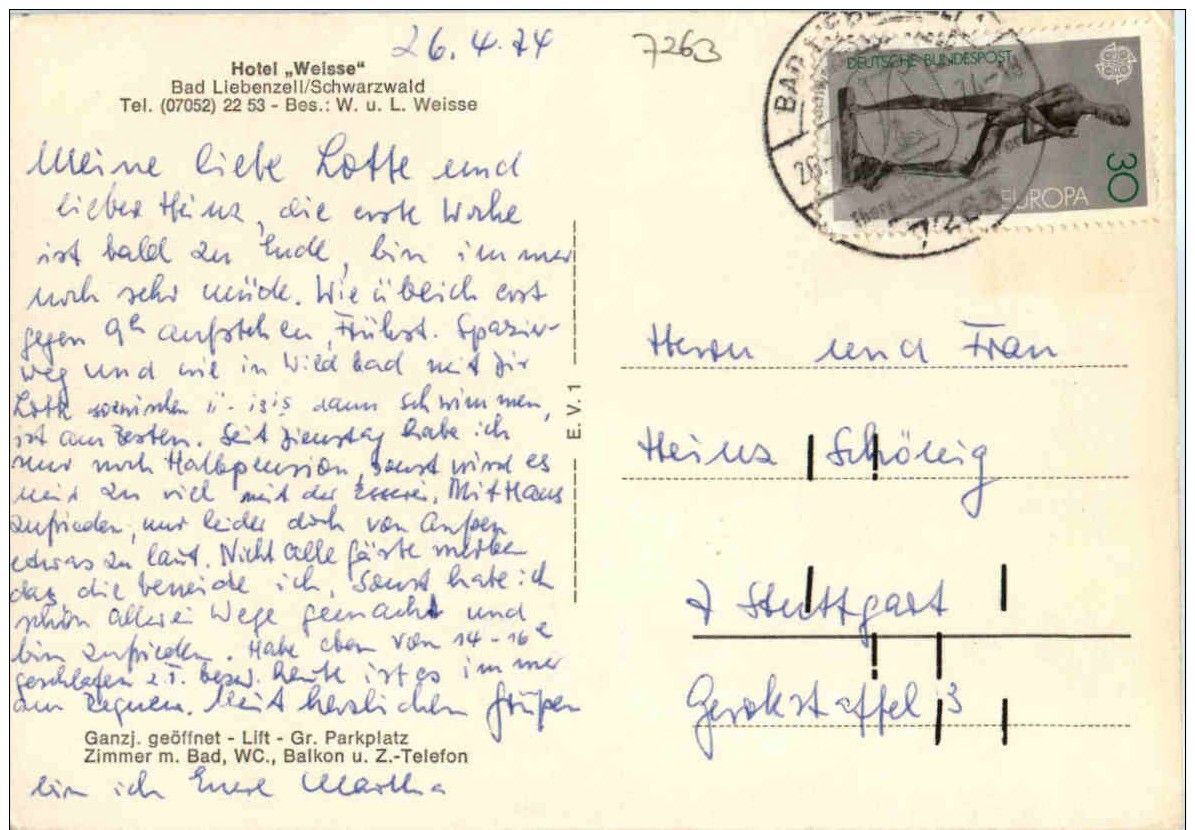 26.4.74
7263
Hotel „Weisse“
Bad Liebenzell/Schwarzwald
Tel. (07052) 22 53 - Bes.: W. u. L. Weisse
DEUTSCHE BUNDESPOST
30
EUROPA
BAD
7263
Meine liebe Lotte und
lieber Heinz, die erste Woche
ist bald zu Ende, bin immer
noch sehr müde. Wie üblich erst
gegen 9h aufstehen, Frühst. Spazier-
weg und wie in Wildbad mit Dir
Lotte dann schwimmen,
ist am besten. Seit Dienstag habe ich
nur noch Halbpension, sonst wird es
mir zu viel mit der Esserei. Mit Haus
zufrieden, nur leider doch von Außen
etwas zu laut. Nicht alle Gäste merken
das die beneide ich, sonst habe ich
schön allerlei Wege gemacht und
bin zufrieden. Habe eben von 14-16h
geschlafen z.T. bezw. heute ist es immer
am Regnen. Mit herzlichen Grüßen
Ganzj. geöffnet - Lift - Gr. Parkplatz
Zimmer m. Bad, WC., Balkon u. Z.-Telefon
bin ich Eure Martha
E. V. 1
Herrn und Frau
Heinz Schönig
7 Stuttgart
Gerokstaffel 3